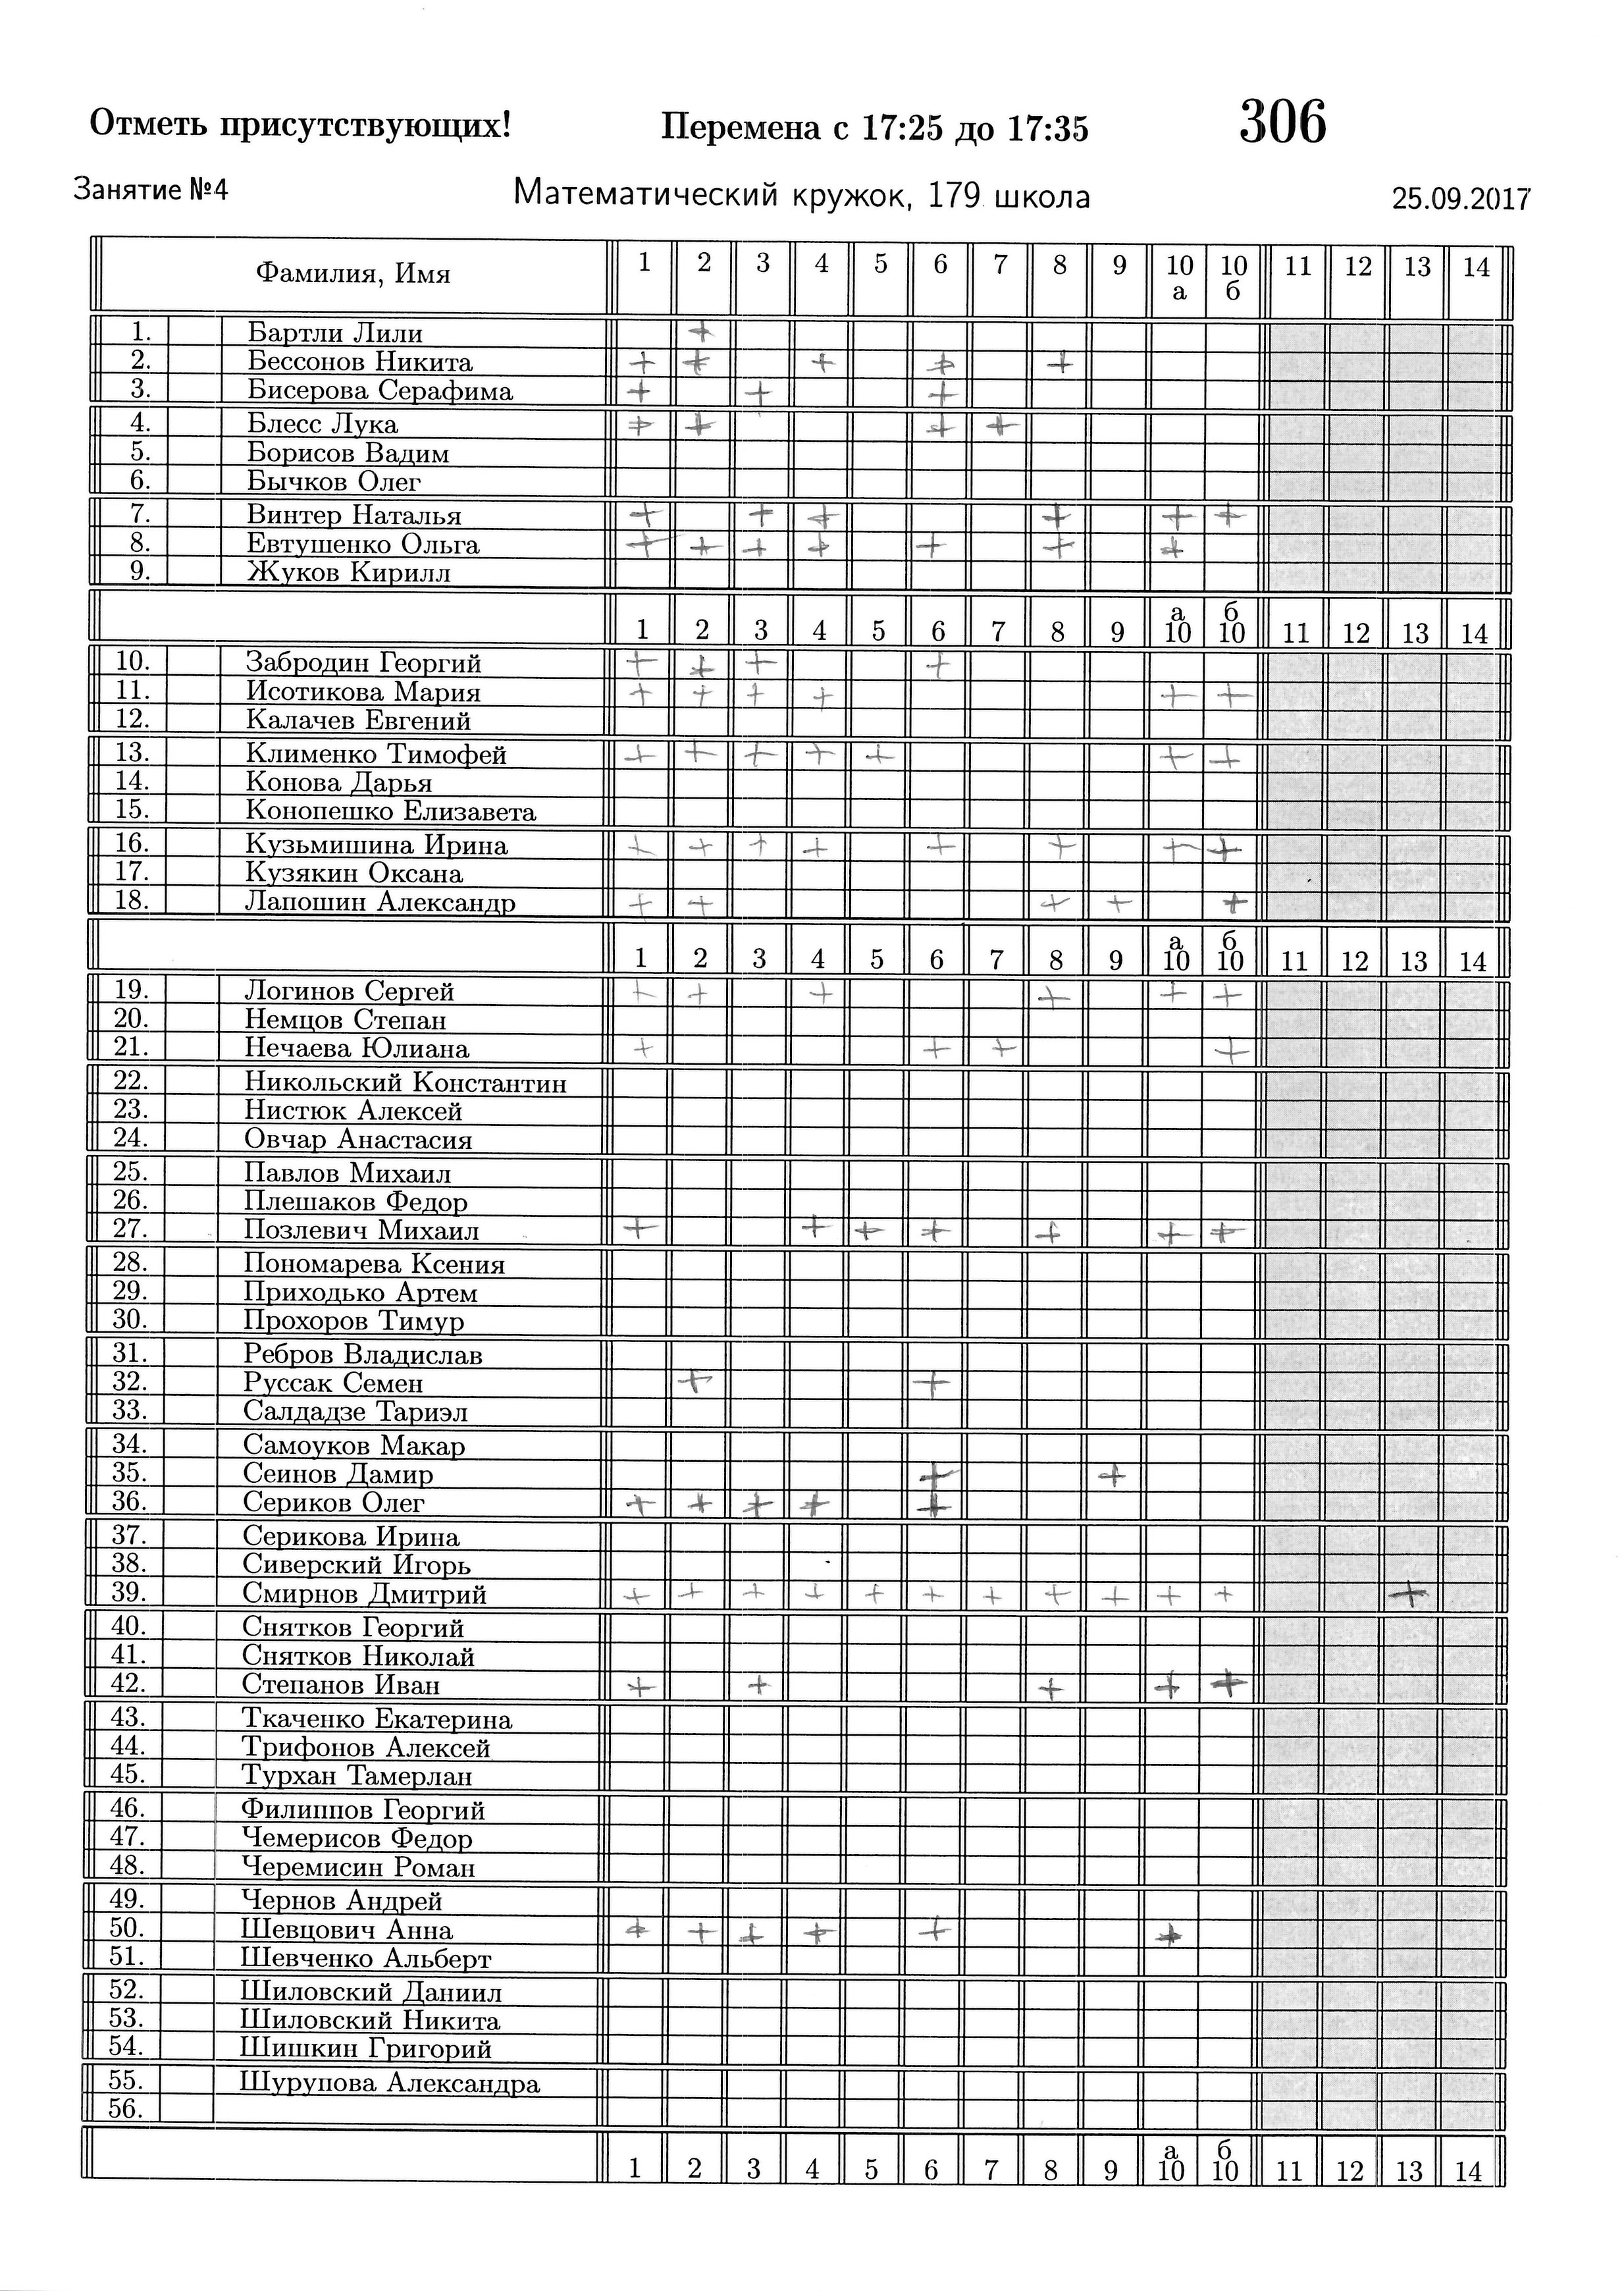 Отметь присутствующих! Перемена с 17:25 до 17:35 306
Занятие №4 Математический кружок, 179 школа 25.09.2017
Фамилия, Имя 1 2 3 4 5 6 7 8 9 10 10 11 12 13 14
а б
1. Бартли Лили +
2. Бессонов Никита + + + + +
3. Бисерова Серафима + + +
4. Блесс Лука + + + +
5. Борисов Вадим
6. Бычков Олег
7. Винтер Наталья + + + + + +
8. Евтушенко Ольга + + + + + + +
9. Жуков Кирилл
а б
1 2 3 4 5 6 7 8 9 10 10 11 12 13 14
10. Забродин Георгий + + + +
11. Исотикова Мария + + + + + +
12. Калачев Евгений
13. Клименко Тимофей + + + + + + +
14. Конова Дарья
15. Конопешко Елизавета
16. Кузьмишина Ирина + + + + + + + +
17. Кузякин Оксана
18. Лапошин Александр + + + + +
а б
1 2 3 4 5 6 7 8 9 10 10 11 12 13 14
19. Логинов Сергей + + + + + +
20. Немцов Степан
21. Нечаева Юлиана + + + +
22. Никольский Константин
23. Нистюк Алексей
24. Овчар Анастасия
25. Павлов Михаил
26. Плешаков Федор
27. Позлевич Михаил + + + + + + +
28. Пономарева Ксения
29. Приходько Артем
30. Прохоров Тимур
31. Ребров Владислав
32. Руссак Семен + +
33. Салдадзе Тариэл
34. Самоуков Макар
35. Сеинов Дамир + +
36. Сериков Олег + + + + +
37. Серикова Ирина
38. Сиверский Игорь
39. Смирнов Дмитрий + + + + + + + + + + + +
40. Снятков Георгий
41. Снятков Николай
42. Степанов Иван + + + + +
43. Ткаченко Екатерина
44. Трифонов Алексей
45. Турхан Тамерлан
46. Филиппов Георгий
47. Чемерисов Федор
48. Черемисин Роман
49. Чернов Андрей
50. Шевцович Анна + + + + + +
51. Шевченко Альберт
52. Шиловский Даниил
53. Шиловский Никита
54. Шишкин Григорий
55. Шурупова Александра
56.
а б
1 2 3 4 5 6 7 8 9 10 10 11 12 13 14